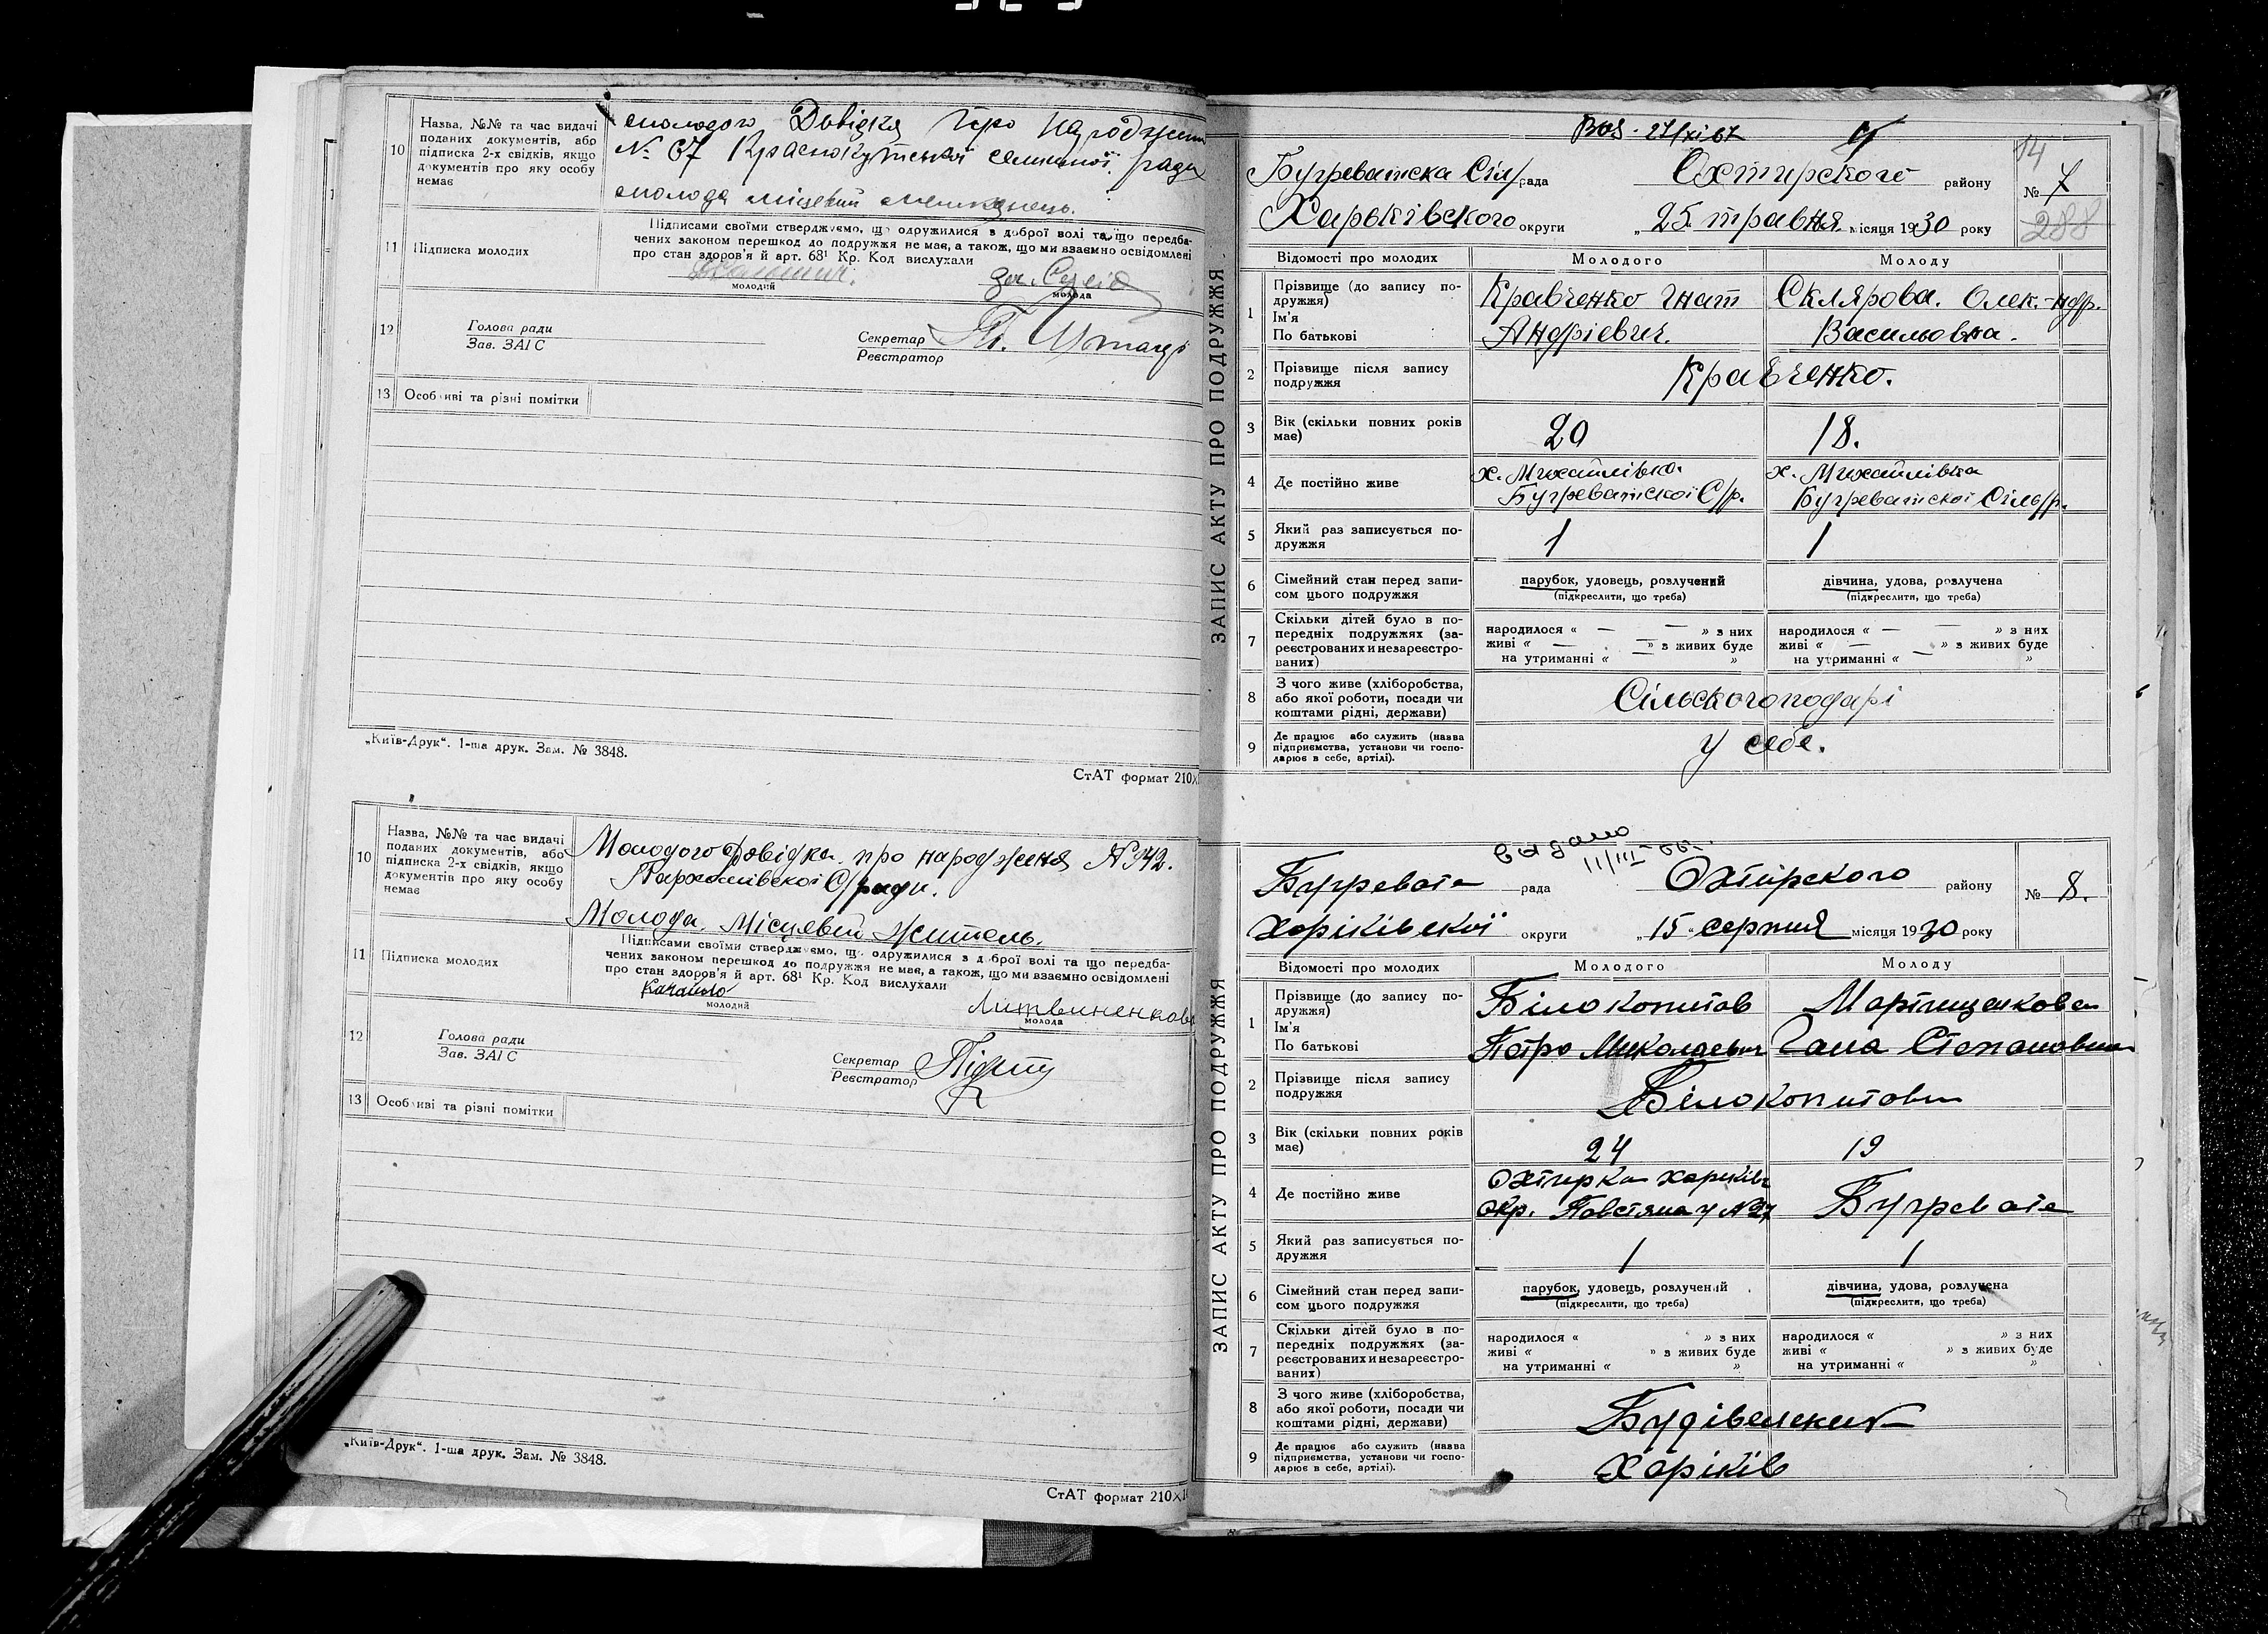 10
Назва, №№ та час видачі
поданих документів, або
підписка 2-х свідків, якщо
документів про яку особу
немає
молодого Довідка про народження
№ 67 Краснокутської селищної ради
молода місцевий мешканець.
11 Підписка молодих
Підписами своїми стверджуємо, що одружилися з доброї волі та що передба-
чених законом перешкод до подружжя не має, а також, що ми взаємно освідомлені
про стан здоров'я й арт. 68¹ Кр. Код вислухали
молодий
молода
12
Голова ради
Зав. ЗАГС
Секретар
Реєстратор
13 Особливі та різні помітки
„Київ-Друк“. 1-ша друк. Зам. № 3848.
СтАТ формат 210×
10
Назва, №№ та час видачі
поданих документів, або
підписка 2-х свідків, якщо
документів про яку особу
немає
Молодого Довідка про народженя №942.
Пархомівскої С/ради.
Молода. Місцевий житель.
11 Підписка молодих
Підписами своїми стверджуємо, що одружилися з доброї волі та що передба-
чених законом перешкод до подружжя не має, а також, що ми взаємно освідомлені
про стан здоров'я й арт. 68¹ Кр. Код вислухали
Качайло
молодий
Литвиненкова
молода
12
Голова ради
Зав. ЗАГС
Секретар
Реєстратор
13 Особливі та різні помітки
„Київ-Друк“. 1-ша друк. Зам. № 3848.
СтАТ формат 210×1
ЗАПИС АКТУ ПРО ПОДРУЖЖЯ
27/XI 67
14
Бугреватска Сіл/рада Охтирского району № 7
Харьківского округи „25 травня місяця 1930 року
288
Відомості про молодих Молодого Молоду
1
Прізвище (до запису по-
дружжя)
Ім'я
По батькові
Кравченко Гнат
Андрієвич.
Склярова. Олек.-ндр.
Васильовна.
2
Прізвище після запису
подружжя
Кравченко.
3
Вік (скільки повних років
має)
20
18.
4 Де постійно живе
х. Михайлівка.
Бугреватскої С/р.
х. Михайлівка
Бугреватскої Сіль/р.
5
Який раз записується по-
дружжя
1
1
6
Сімейний стан перед запи-
сом цього подружжя
парубок, удовець, розлучений
(підкреслити, що треба)
дівчина, удова, розлучена
(підкреслити, що треба)
7
Скільки дітей було в по-
передніх подружжях (за-
реєстрованих и незареєстро-
ваних)
народилося « — — » з них
живі « — — » з живих буде
на утриманні « — »
народилося « — — » з них
живі « — — » з живих буде
на утриманні « — »
8
З чого живе (хліборобства,
або якої роботи, посади чи
коштами рідні, держави)
9
Де працює або служить (назва
підприємства, установи чи госпо-
дарює в себе, артілі).
у себе.
ЗАПИС АКТУ ПРО ПОДРУЖЖЯ
видано
11/III-66.
Бугревата рада Охтирского району № 8.
Харіківскої округи „15“ серпня місяця 1930 року
Відомості про молодих Молодого Молоду
1
Прізвище (до запису по-
дружжя)
Ім'я
По батькові
Білокопитов
Петро Миколаєвич
Мартищенкова
Гана Степановна
2
Прізвище після запису
подружжя
Білокопитови
3
Вік (скільки повних років
має)
24
19
4 Де постійно живе
Охтирка Харіків
Окр.
Бугревата
5
Який раз записується по-
дружжя
1
1
6
Сімейний стан перед запи-
сом цього подружжя
парубок, удовець, розлучений
(підкреслити, що треба)
дівчина, удова, розлучена
(підкреслити, що треба)
7
Скільки дітей було в по-
передніх подружжях (за-
реєстрованих и незареєстро-
ваних)
народилося « » з них
живі « » з живих буде
на утриманні « »
народилося « » з них
живі « » з живих буде
на утриманні « »
8
З чого живе (хліборобства,
або якої роботи, посади чи
коштами рідні, держави)
9
Де працює або служить (назва
підприємства, установи чи госпо-
дарює в себе, артілі).
Харіків